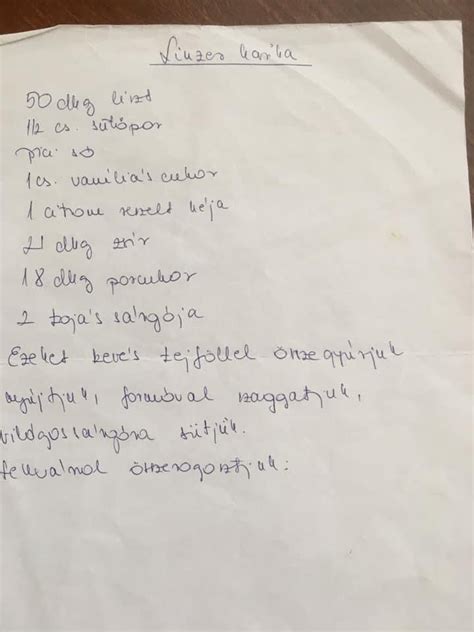 Linzer karika
50 dkg liszt
1/2 cs. sütőpor
pici só
1 cs. vaníliás cukor
1 citrom reszelt héja
21 dkg zsír
18 dkg porcukor
2 tojás sárgája
Ezeket kevés tejföllel összegyúrjuk
nyújtjuk, formával szaggatjuk,
világossárgára sütjük.
Lekvárral összeragasztjuk.